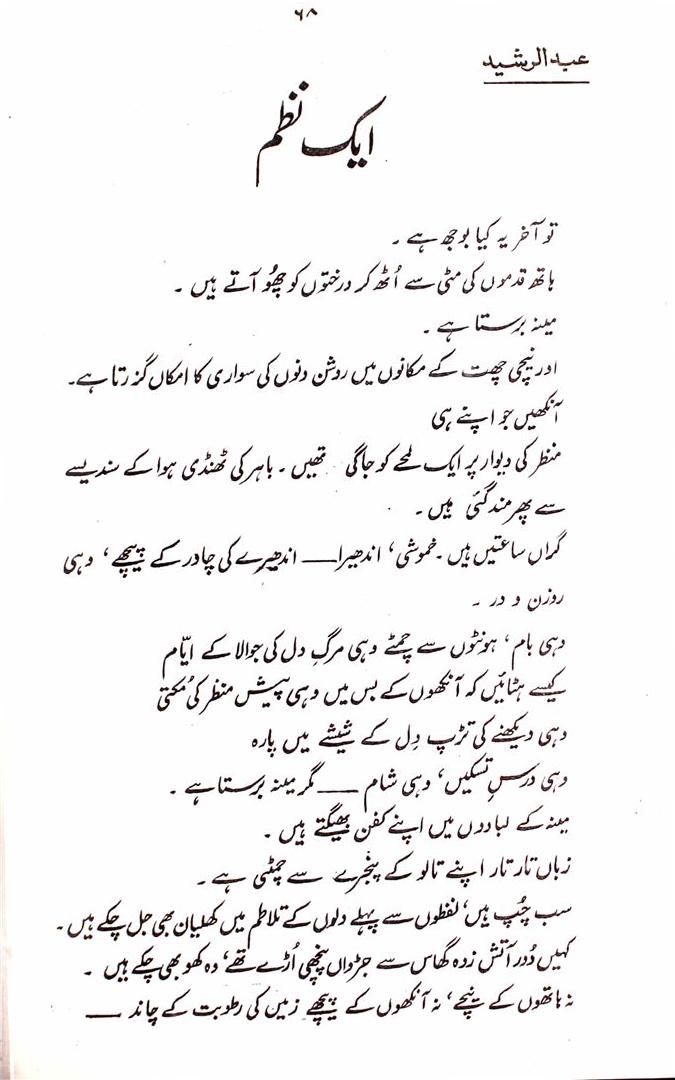 ۶۸
عبدالرشید
ایک نظم
تو آخر یہ کیا بوجھ ہے ۔
ہاتھ قدموں کی مٹی سے اُٹھ کر درختوں کو چھُو آتے ہیں ۔
مینہ برستا ہے ۔
اور نیچی چھت کے مکانوں میں روشن دنوں کی سواری کا امکاں گزرتا ہے۔
آنکھیں جو اپنے ہی
منظر کی دیوار پر ایک لمحے کو جاگی تھیں ۔ باہر کی ٹھنڈی ہوا کے سندیسے
سے پھر مند گئی ہیں ۔
گراں ساعتیں ہیں ۔ خموشی، اندھیرا ــــ اندھیرے کی چادر کے پیچھے، وہی
روزن و در ۔
وہی بام، ہونٹوں سے چمٹے وہی مرگِ دل کی جوالا کے ایّام
کیسے ہٹائیں کہ آنکھوں کے بس میں وہی پیش منظر کی مُکتی
وہی دیکھنے کی تڑپ دِل کے شیشے میں پارہ
وہی درسِ تسکیں، وہی شام ــــ مگر مینہ برستا ہے ۔
مینہ کے لبادوں میں اپنے کفن بھیگتے ہیں ۔
زباں تار تار اپنے تالو کے پنجرے سے چمٹی ہے ۔
سب چُپ ہیں، لفظوں سے پہلے دلوں کے تلاطم میں کھلیان بھی جل چکے ہیں ۔
کہیں دُور آتش زدہ گھاس سے جڑواں پنچھی اُڑے تھے، وہ کھو بھی چکے ہیں ۔
نہ ہاتھوں کے نیچے، نہ آنکھوں کے پیچھے زمیں کی رطوبت کے چاند ــــ